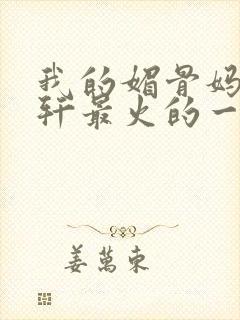 我的媚骨妈
轩最火的一
姜萬东